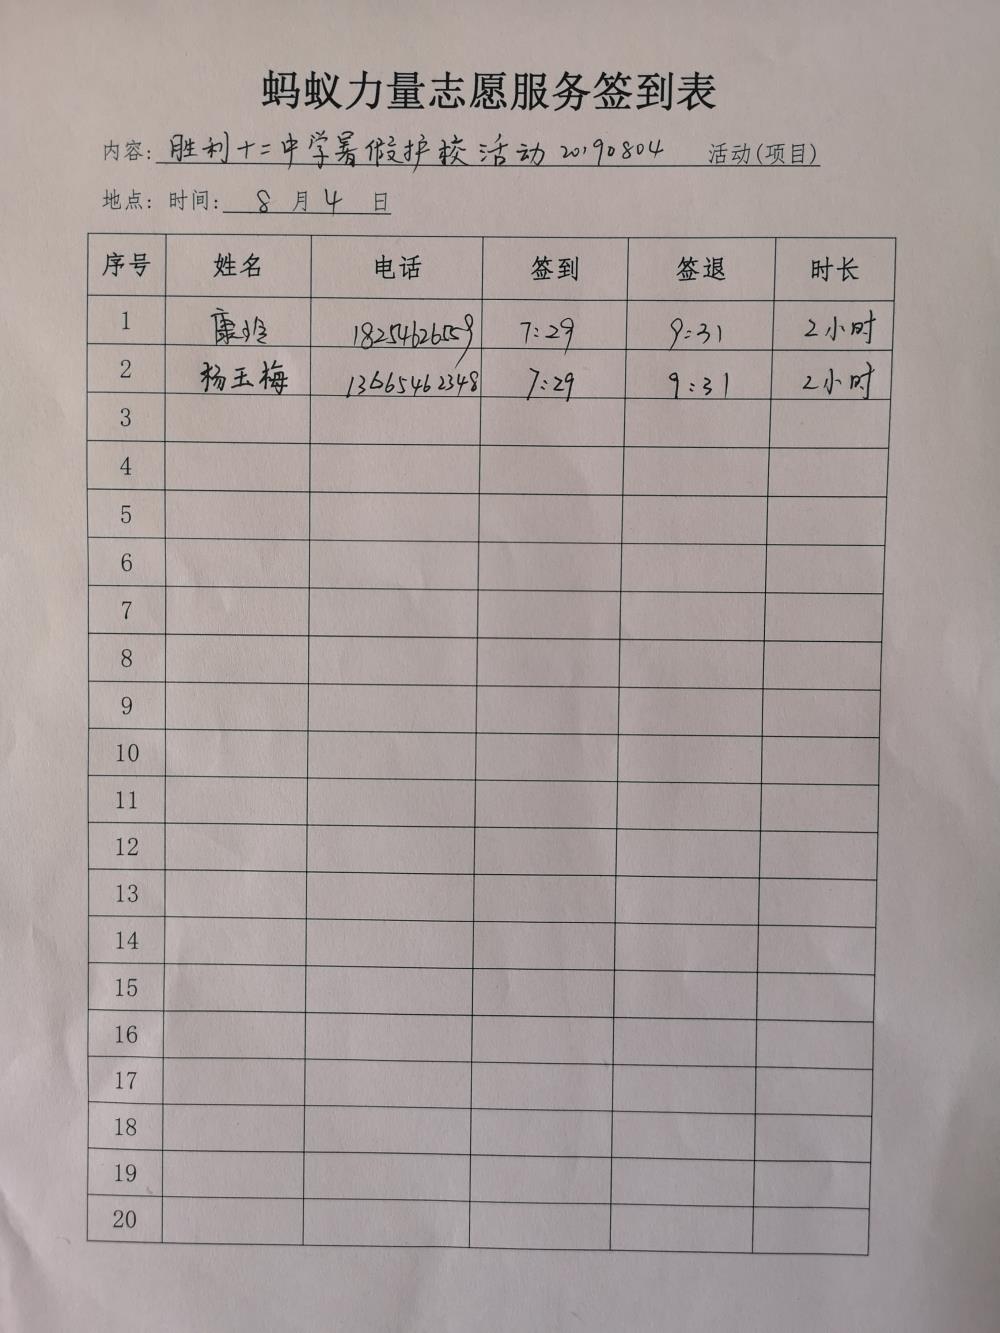 蚂蚁力量志愿服务签到表
内容: 胜利十二中学暑假护校活动20190804 活动(项目)
地点: 时间: 8 月 4 日
序号 姓名 电话 签到 签退 时长
1 康玲 18254626559 7:29 9:31 2小时
2 杨玉梅 13665462348 7:29 9:31 2小时
3
4
5
6
7
8
9
10
11
12
13
14
15
16
17
18
19
20